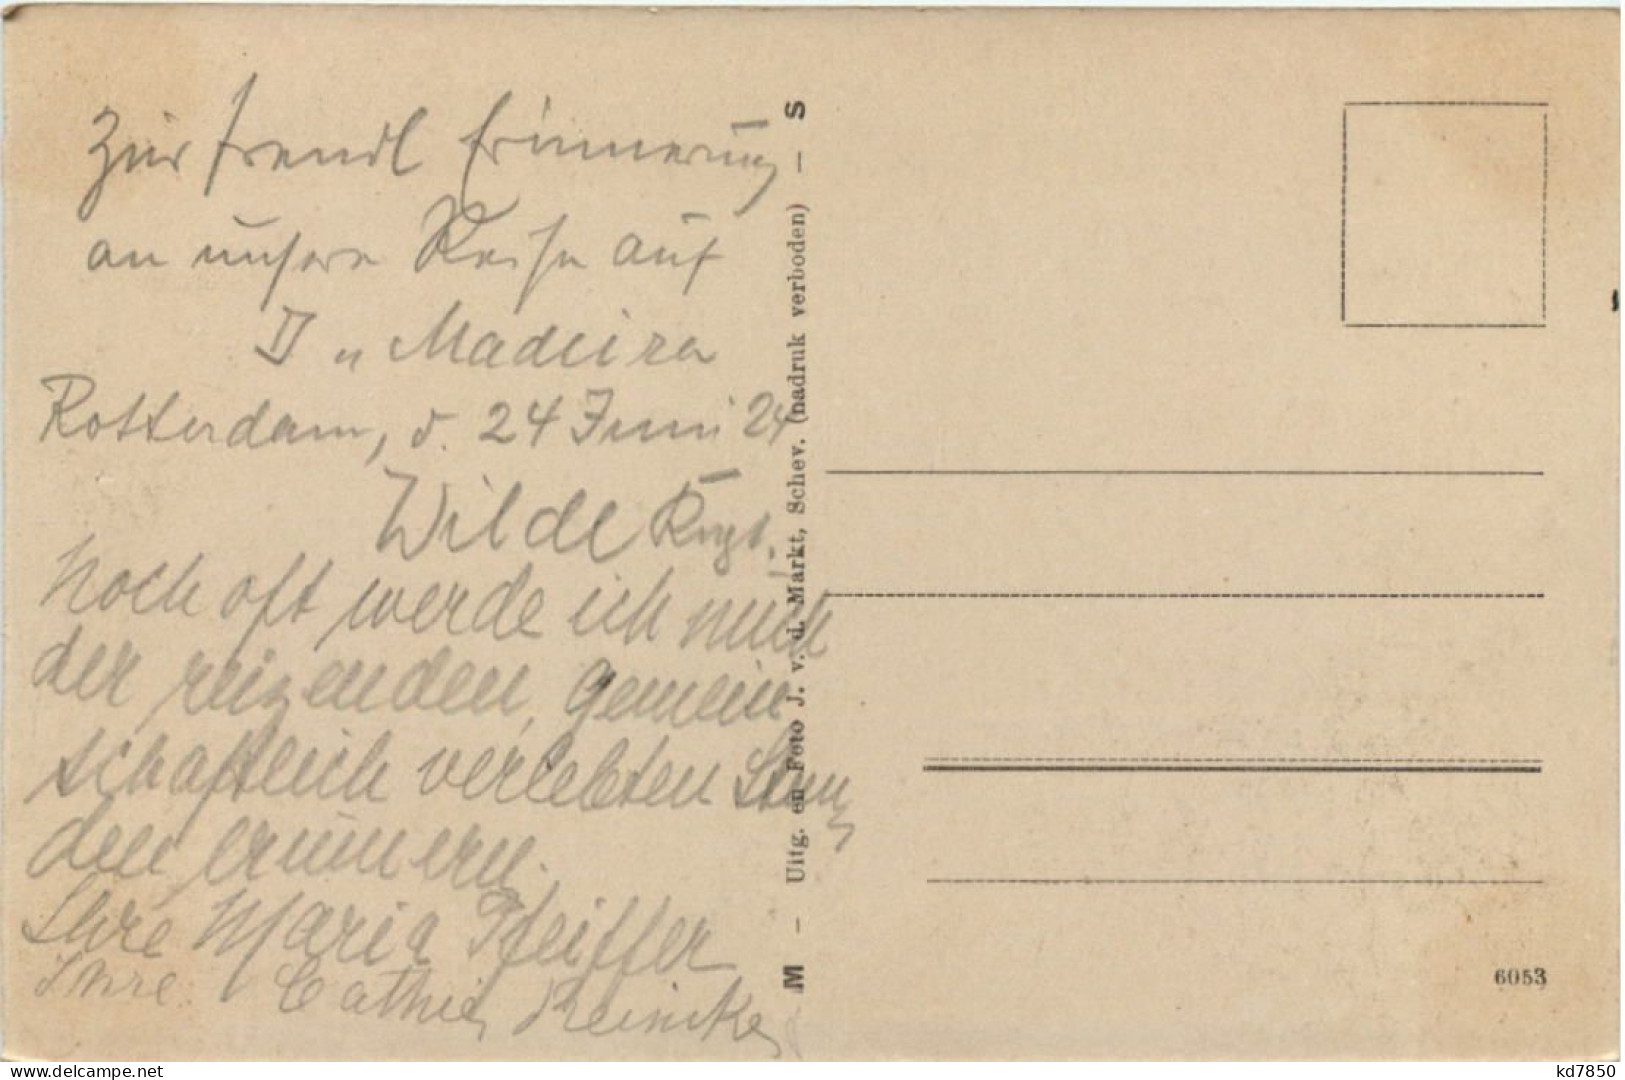 Zur freudl Erinnerung
an unsere Reise auf
D „ Madeira
Rotterdam, d. 24 Juni 24
Wilde
Noch oft werde ich mich
der reizenden, gemein
schaftlich verlebten Stun
den erinnern.
Ihre Maria Pfeiffer
Ihre Cathie Reincke
M - Uitg. en Foto J. v. d. Markt, Schev. (nadruk verboden) - S
6053
delcampe.net
kd7850